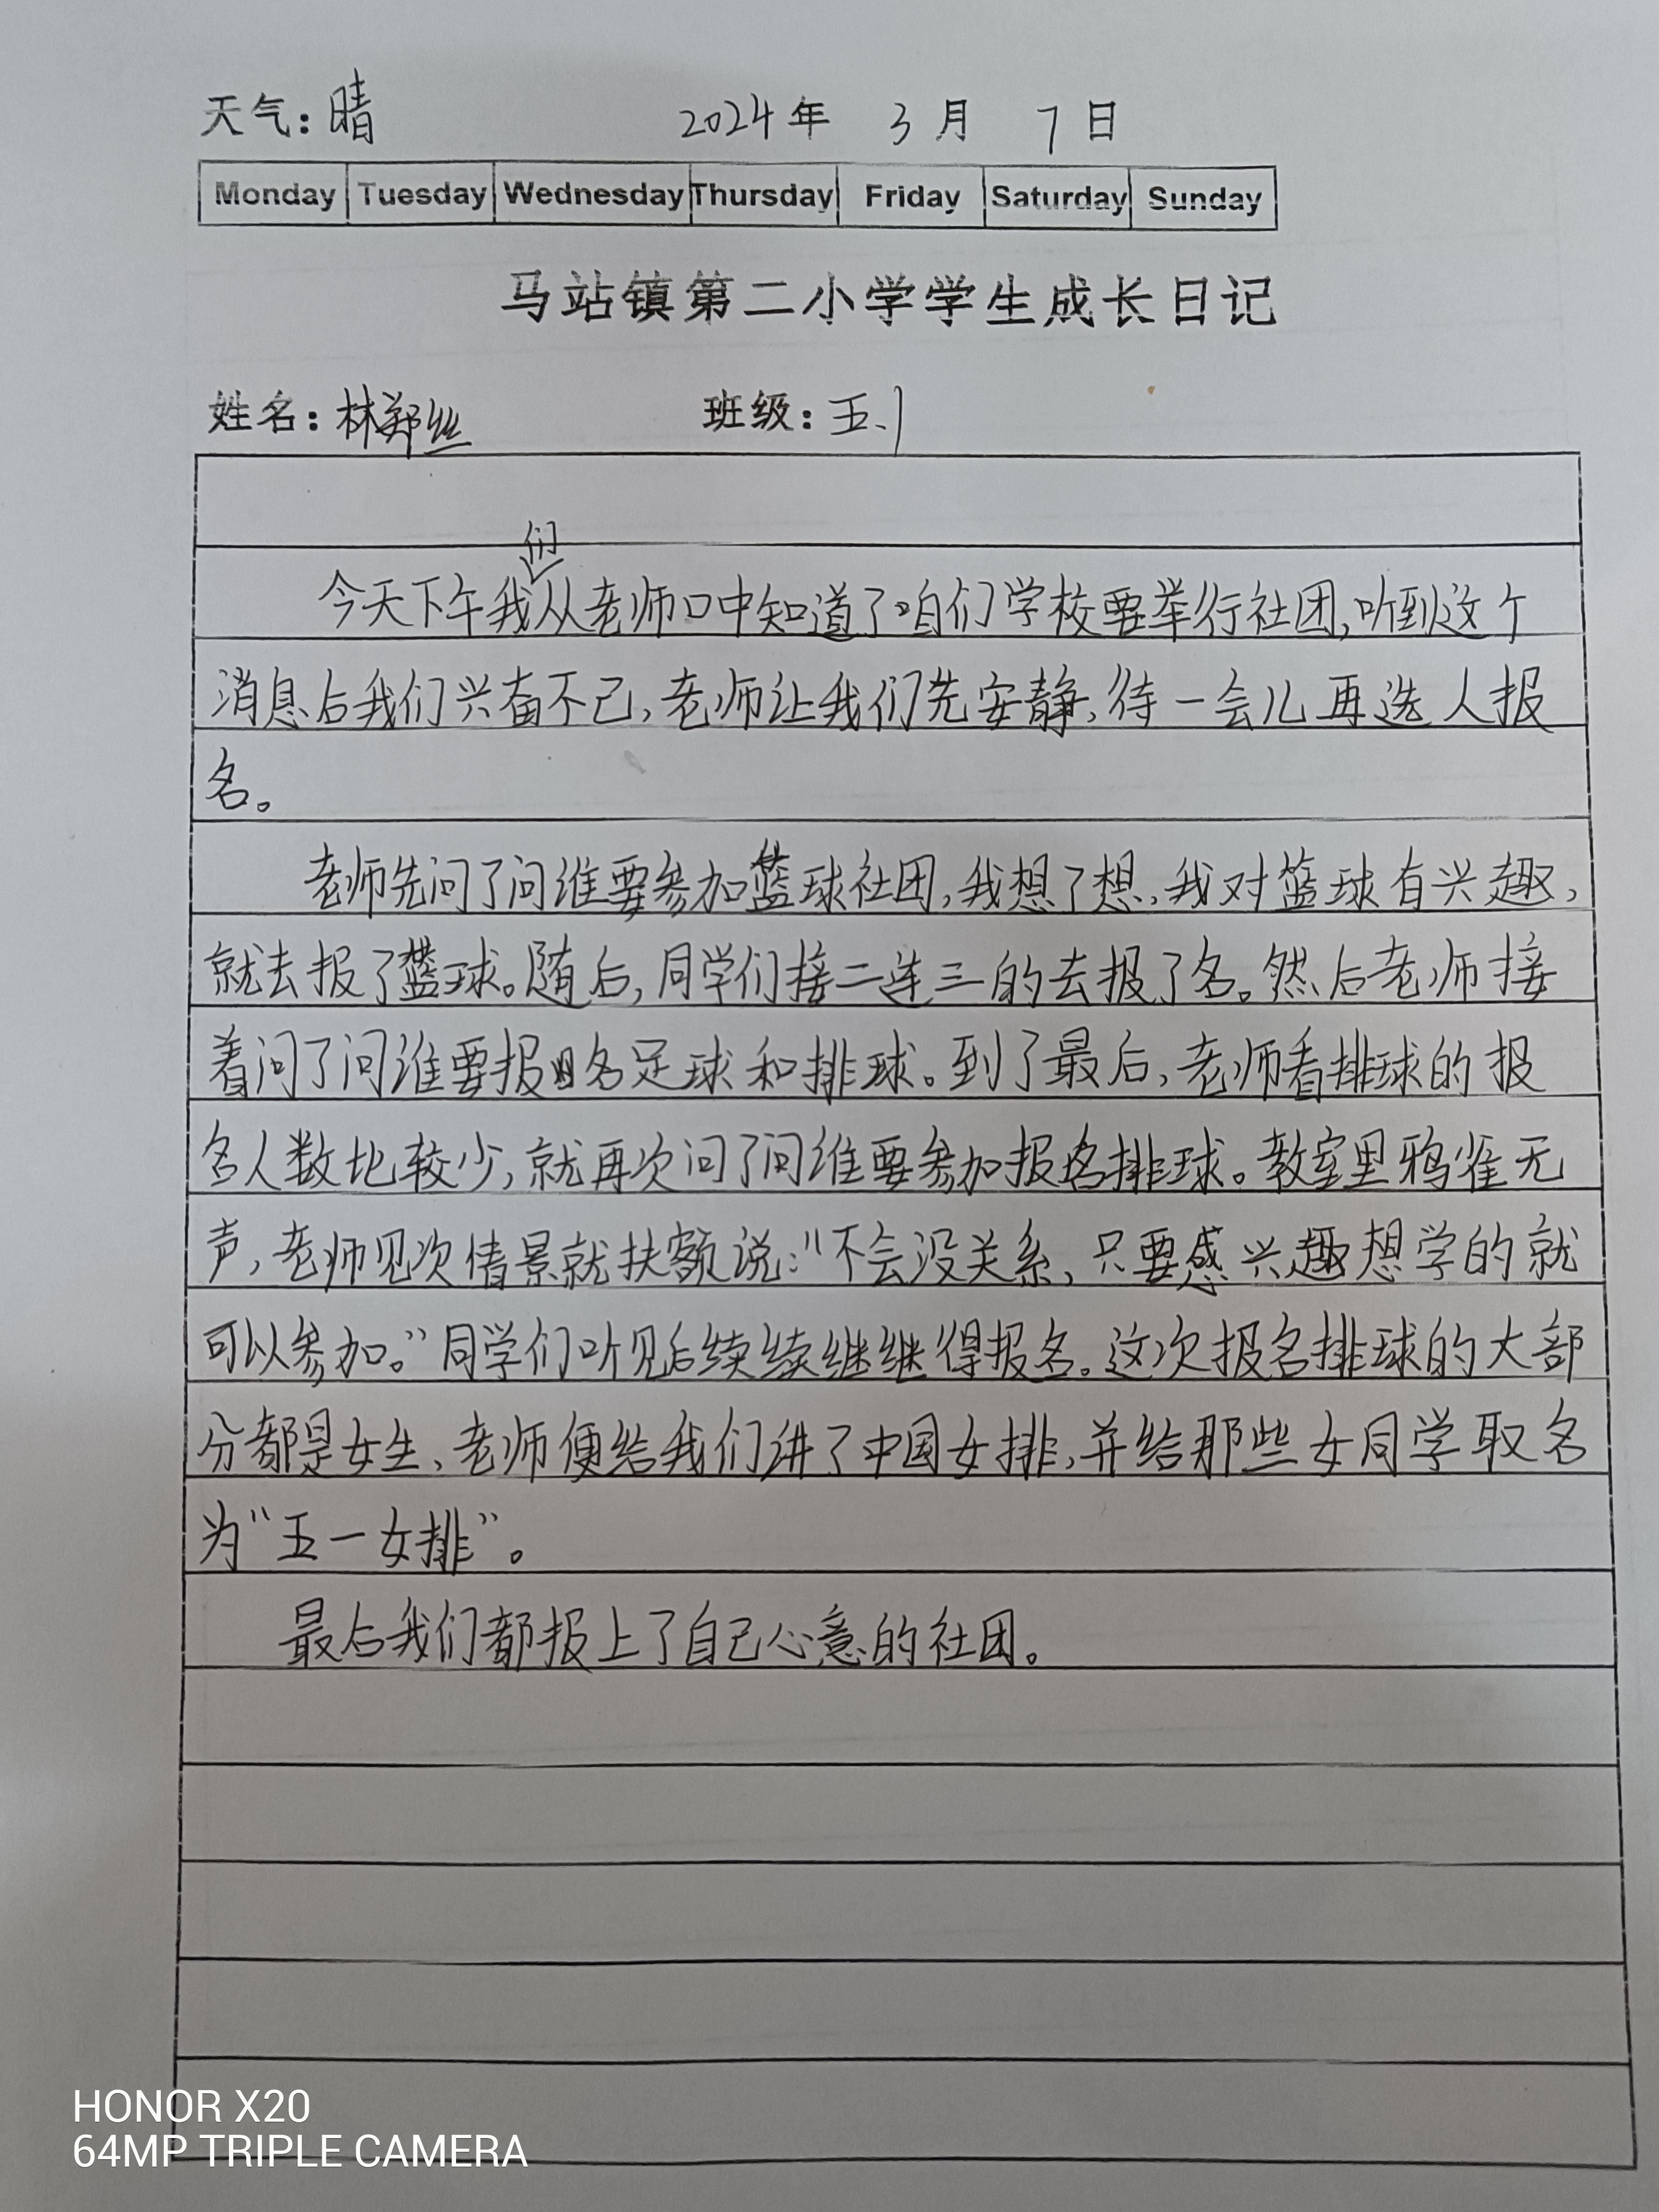 天气：晴 2024年 3月 7日
Monday Tuesday Wednesday Thursday Friday Saturday Sunday
马站镇第二小学学生成长日记
姓名：林郑丝 班级：五.1
们
今天下午我从老师口中知道了咱们学校要举行社团，听到这个
消息后我们兴奋不已，老师让我们先安静，待一会儿再选人报
名。
老师先问了问谁要参加篮球社团，我想了想，我对篮球有兴趣，
就去报了篮球。随后，同学们接二连三的去报了名。然后老师接
着问了问谁要报名足球和排球。到了最后，老师看排球的报
名人数比较少，就再次问了问谁要参加报名排球。教室里鸦雀无
声，老师见次情景就扶额说：“不会没关系，只要感兴趣想学的就
可以参加。”同学们听见后续续继继得报名。这次报名排球的大部
分都是女生、老师便给我们讲了中国女排，并给那些女同学取名
为“五一女排”。
最后我们都报上了自己心意的社团。
HONOR X20
64MP TRIPLE CAMERA